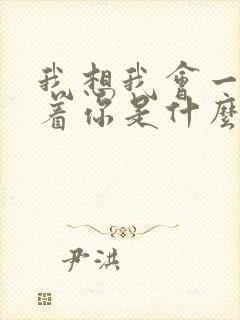 我想我会一
着你是什麼
尹洪